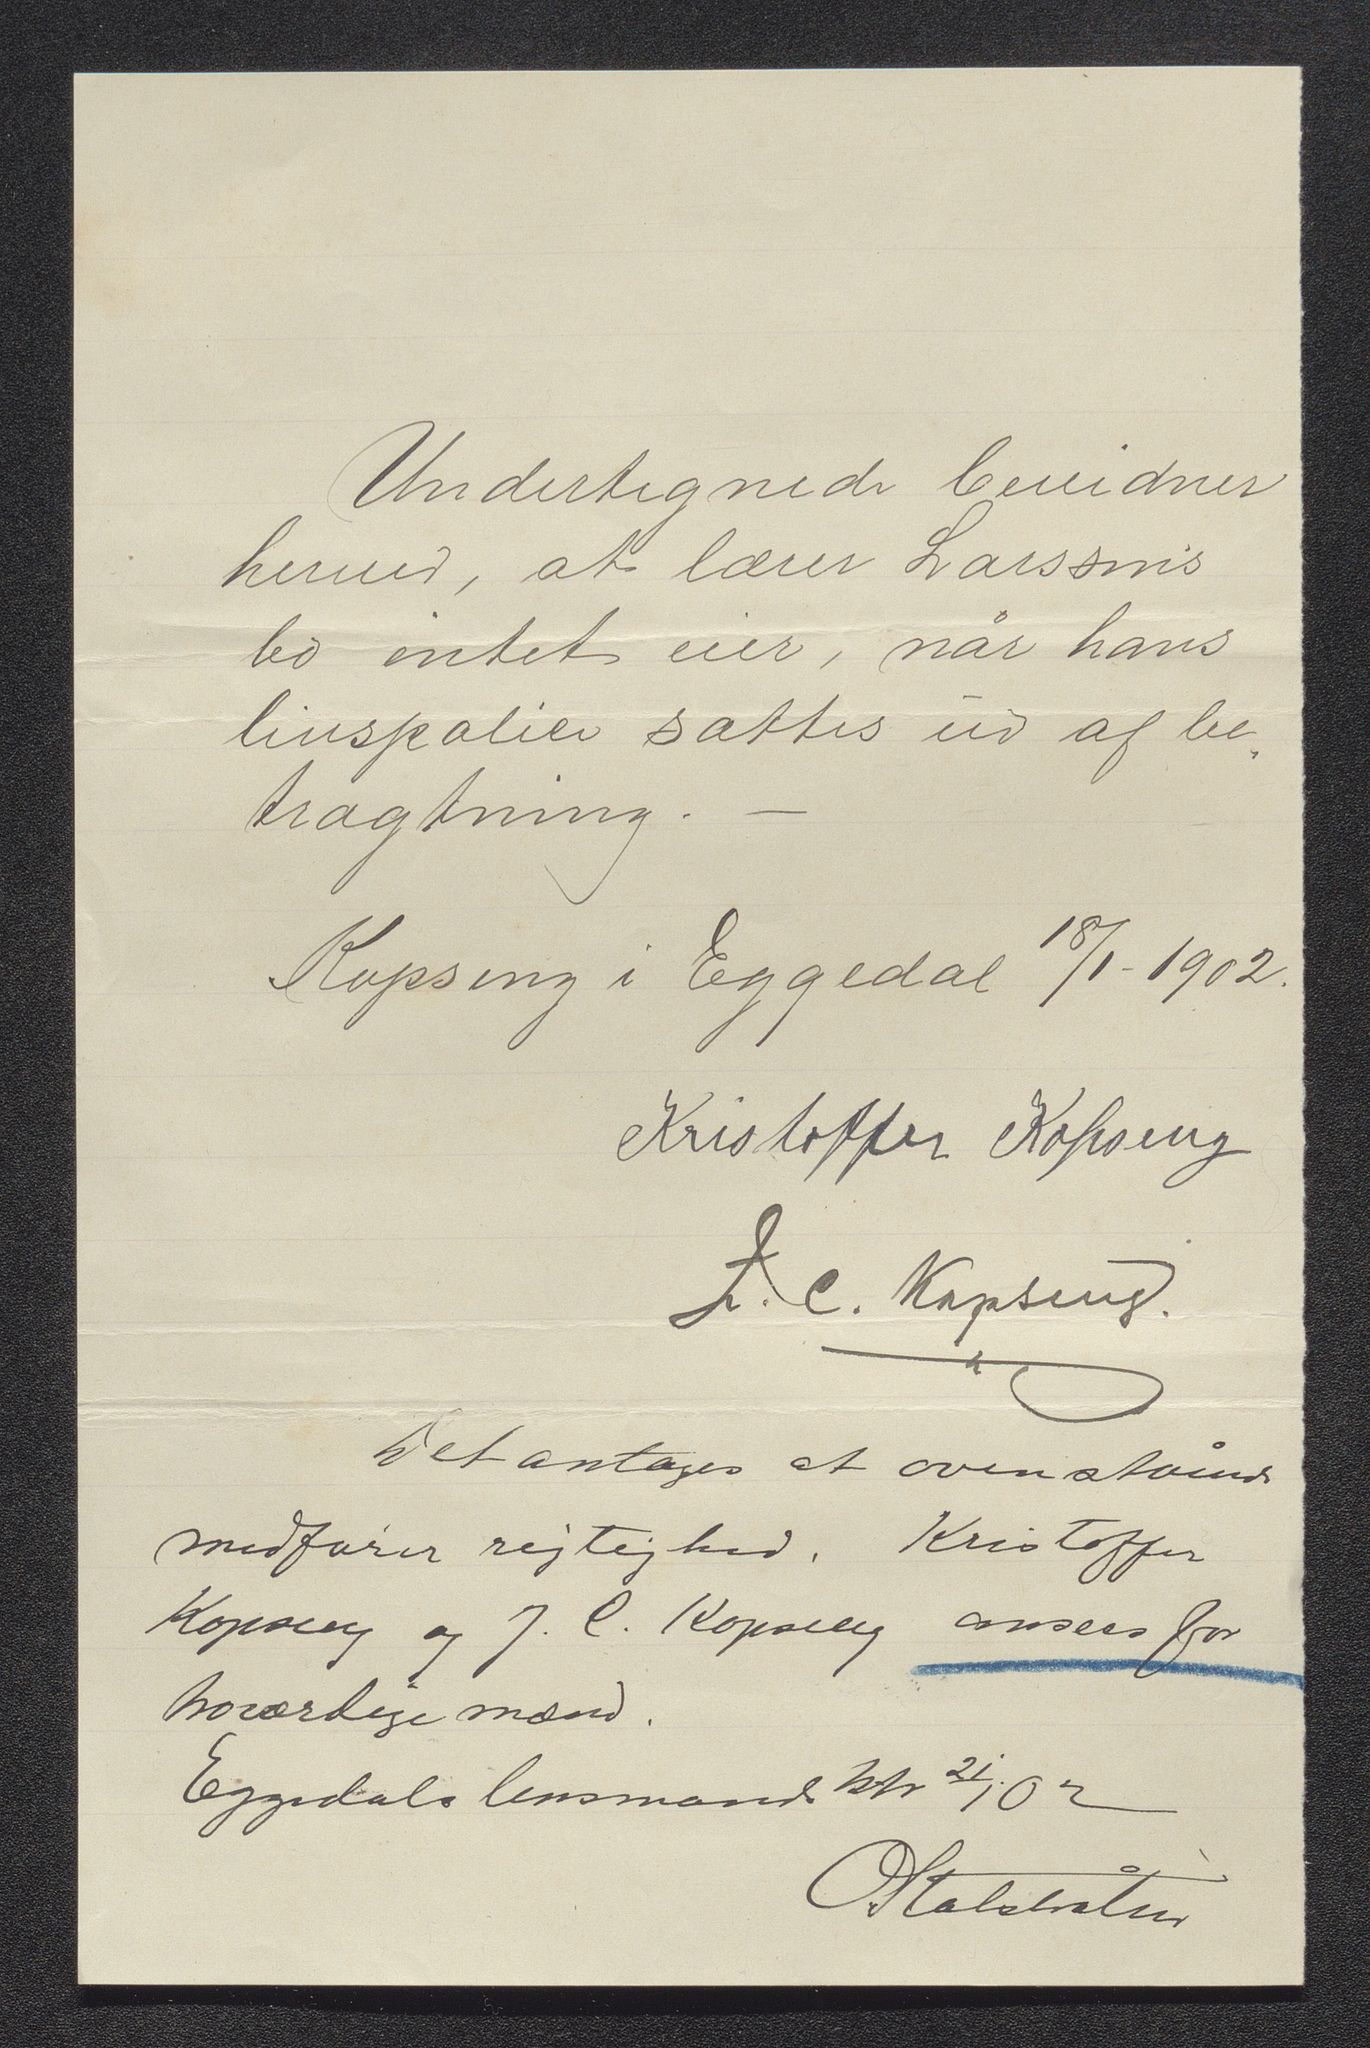 Undertegnede bevidner
herved, at lærer Larssens
bo intet eier, når hans
livspolice sættes ud af be-
tragtning. —
Kopseng i Eggedal 18/1-1902.
Kristoffer Kopseng
J. C. Kopseng.
Det antages at ovenstående
medfører rigtighed. Kristoffer
Kopseng og J. C. Kopseng ansees for
troværdige mænd.
Eggedals lensmands ktr 21/1 02